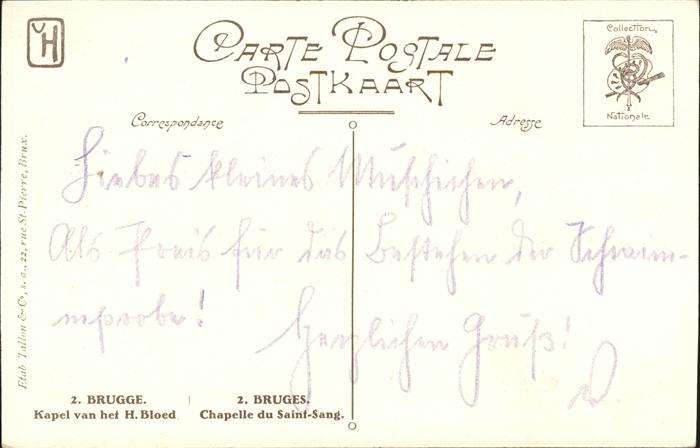 VH
CARTE POSTALE
POSTKAART
Collection
Nationale
Correspondance
Adresse
Liebes kleines Muschichen,
Als Preis für das Bestehen der Schwim-
mprobe!
Herzlichen Gruß!
Etab. Tallon & Co, s. a., 22, rue St-Pierre, Brux.
2. BRUGGE.
Kapel van het H. Bloed
2. BRUGES.
Chapelle du Saint-Sang.